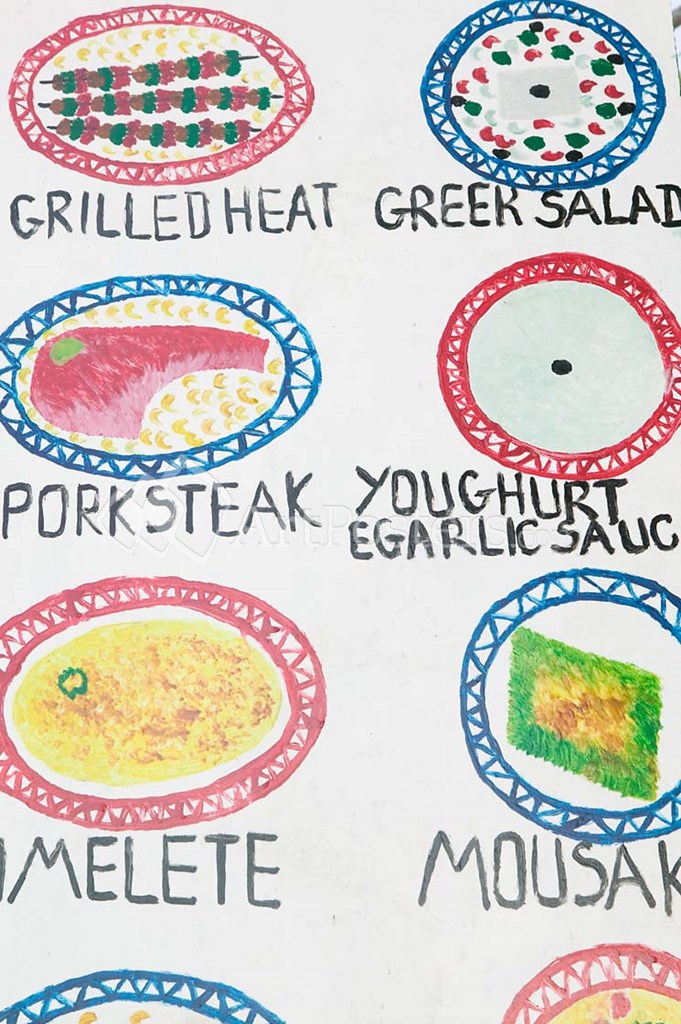 GRILLED HEAT
GREEK SALAD
PORK STEAK
YOUGHURT
EGARLIC SAUC
OMELETE
MOUSAK